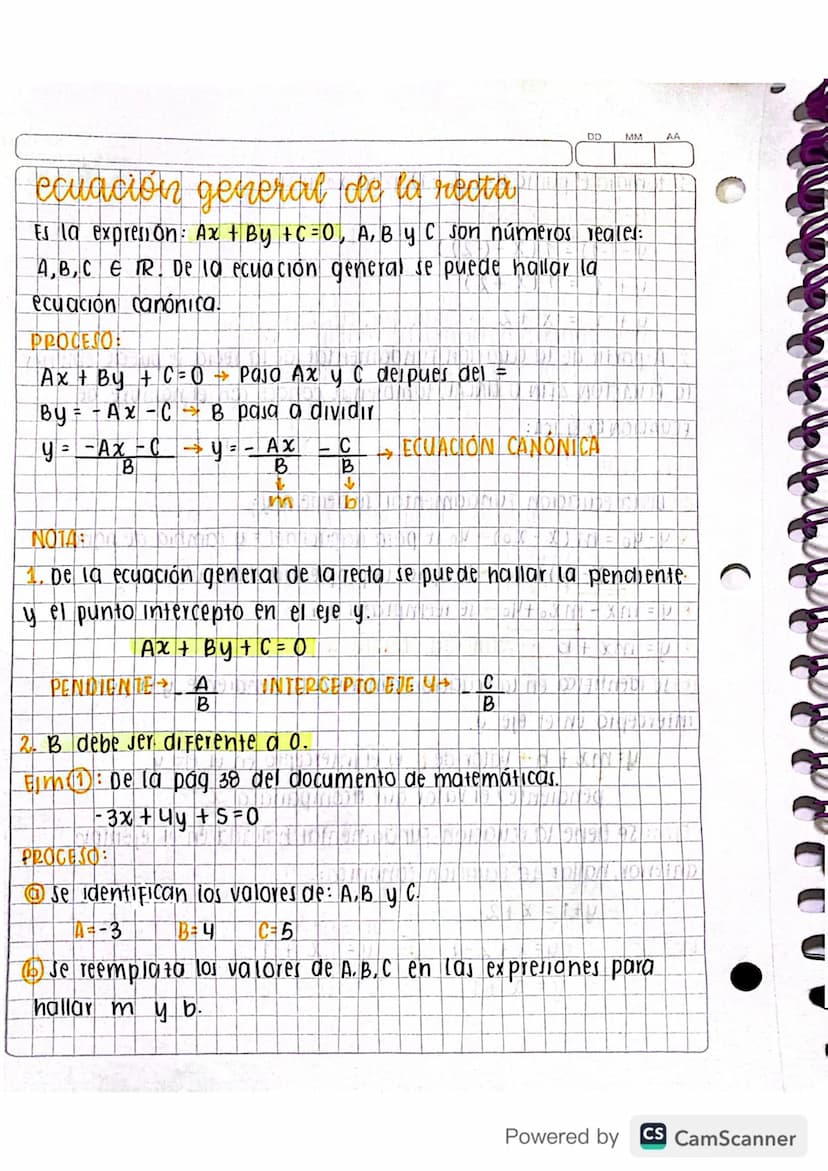 DD MM AA
ecuación general de la recta
Es la expresión: Ax + By + C = 0, A, B y C son números reales:
A, B, C ∈ ℝ. De la ecuación general se puede hallar la
ecuación canónica.
PROCESO:
Ax + By + C = 0 → Paso Ax y C despues del =
By = - Ax - C → B pasa a dividir
y = -Ax - C / B → y = - Ax / B - C / B → ECUACIÓN CANÓNICA
↓ ↓
m b
NOTA:
1. De la ecuación general de la recta se puede hallar la pendiente
y el punto intercepto en el eje y.
Ax + By + C = 0
PENDIENTE → - A / B INTERCEPTO EJE Y → - C / B
2. B debe ser diferente a 0.
Ejm ①: De la pág 38 del documento de matemáticas.
-3x + 4y + 5 = 0
PROCESO:
ⓐ Se identifican los valores de: A, B y C.
A = -3 B = 4 C = 5
ⓑ Se reemplaza los valores de A, B, C en las expresiones para
hallar m y b.
Powered by CS CamScanner